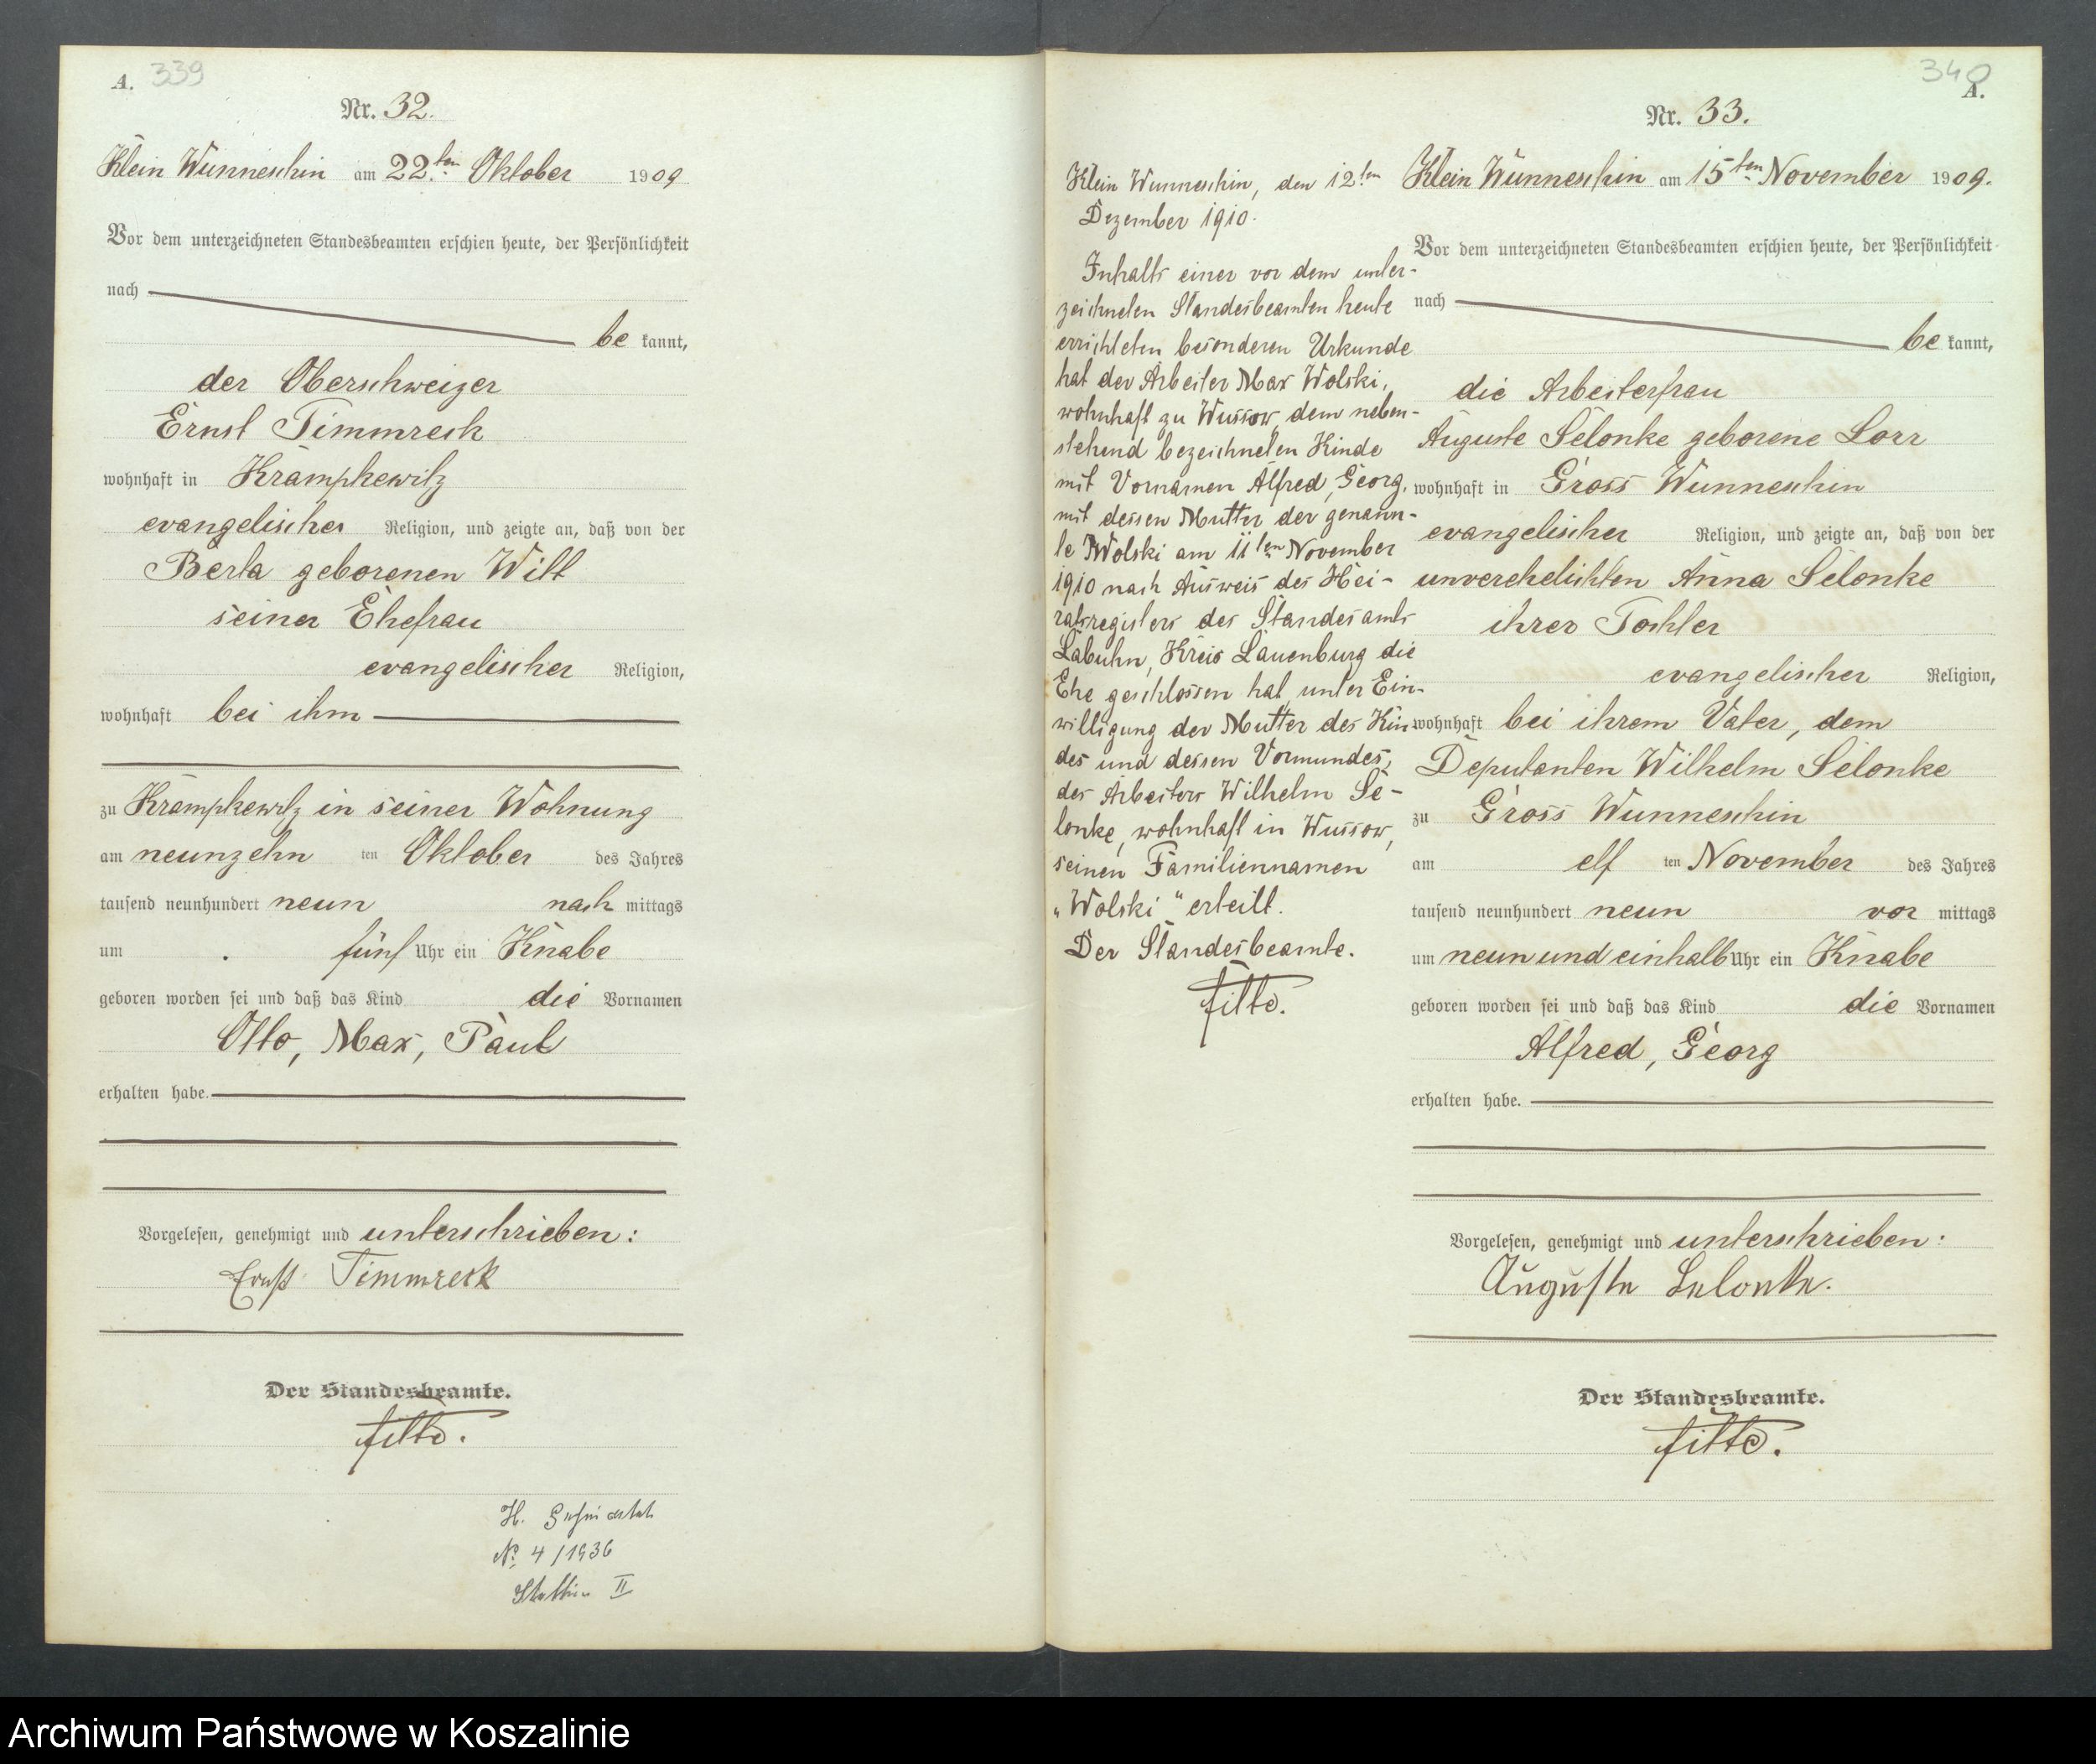 A. 339
Nr. 32.
Klein Wunneschin am 22ten Oktober 1909
Vor dem unterzeichneten Standesbeamten erschien heute, der Persönlichkeit
nach
be kannt,
der Oberschweizer
Ernst Timmreck
wohnhaft in Krampkewitz
evangelischer Religion, und zeigte an, daß von der
Berta geborenen Witt
seiner Ehefrau
evangelischer Religion,
wohnhaft bei ihm
zu Krampkewitz in seiner Wohnung
am neunzehn ten Oktober des Jahres
tausend neunhundert neun nach mittags
um fünf Uhr ein Knabe
geboren worden sei und daß das Kind die Vornamen
Otto, Max, Paul
erhalten habe.
Vorgelesen, genehmigt und unterschrieben:
Ernst Timmreck
Der Standesbeamte.
Fitte.
H.
No 4/1936
Stettin II
340
A.
Nr. 33.
Klein Wunneschin, den 12ten
Dezember 1910.
Inhalts einer vor dem unter-
zeichneten Standesbeamten heute
errichteten besonderen Urkunde
hat der Arbeiter Max Wolski,
wohnhaft zu Wussow, dem neben-
stehend bezeichneten Kinde
mit Vornamen Alfred, Georg,
mit dessen Mutter der genann-
te Wolski am 11ten November
1910 nach Ausweis des Hei-
ratsregisters des Standesamts
Labuhn, Kreis Lauenburg die
Ehe geschlossen hat, unter Ein-
willigung der Mutter des Kin-
des und dessen Vormundes,
des Arbeiters Wilhelm Se-
lonke, wohnhaft in Wussow,
seinen Familiennamen
„Wolski“ erteilt.
Der Standesbeamte.
Fitte.
Klein Wunneschin am 15ten November 1909.
Vor dem unterzeichneten Standesbeamten erschien heute, der Persönlichkeit
nach
be kannt,
die Arbeiterfrau
Auguste Selonke geborene Lorr
wohnhaft in Gross Wunneschin
evangelischer Religion, und zeigte an, daß von der
unverehelichten Anna Selonke
ihrer Tochter
evangelischer Religion,
wohnhaft bei ihrem Vater, dem
Deputanten Wilhelm Selonke
zu Gross Wunneschin
am elf ten November des Jahres
tausend neunhundert neun vor mittags
um neun und einhalb Uhr ein Knabe
geboren worden sei und daß das Kind die Vornamen
Alfred, Georg
erhalten habe.
Vorgelesen, genehmigt und unterschrieben:
Auguste Selonke.
Der Standesbeamte.
Fitte.
Archiwum Państwowe w Koszalinie